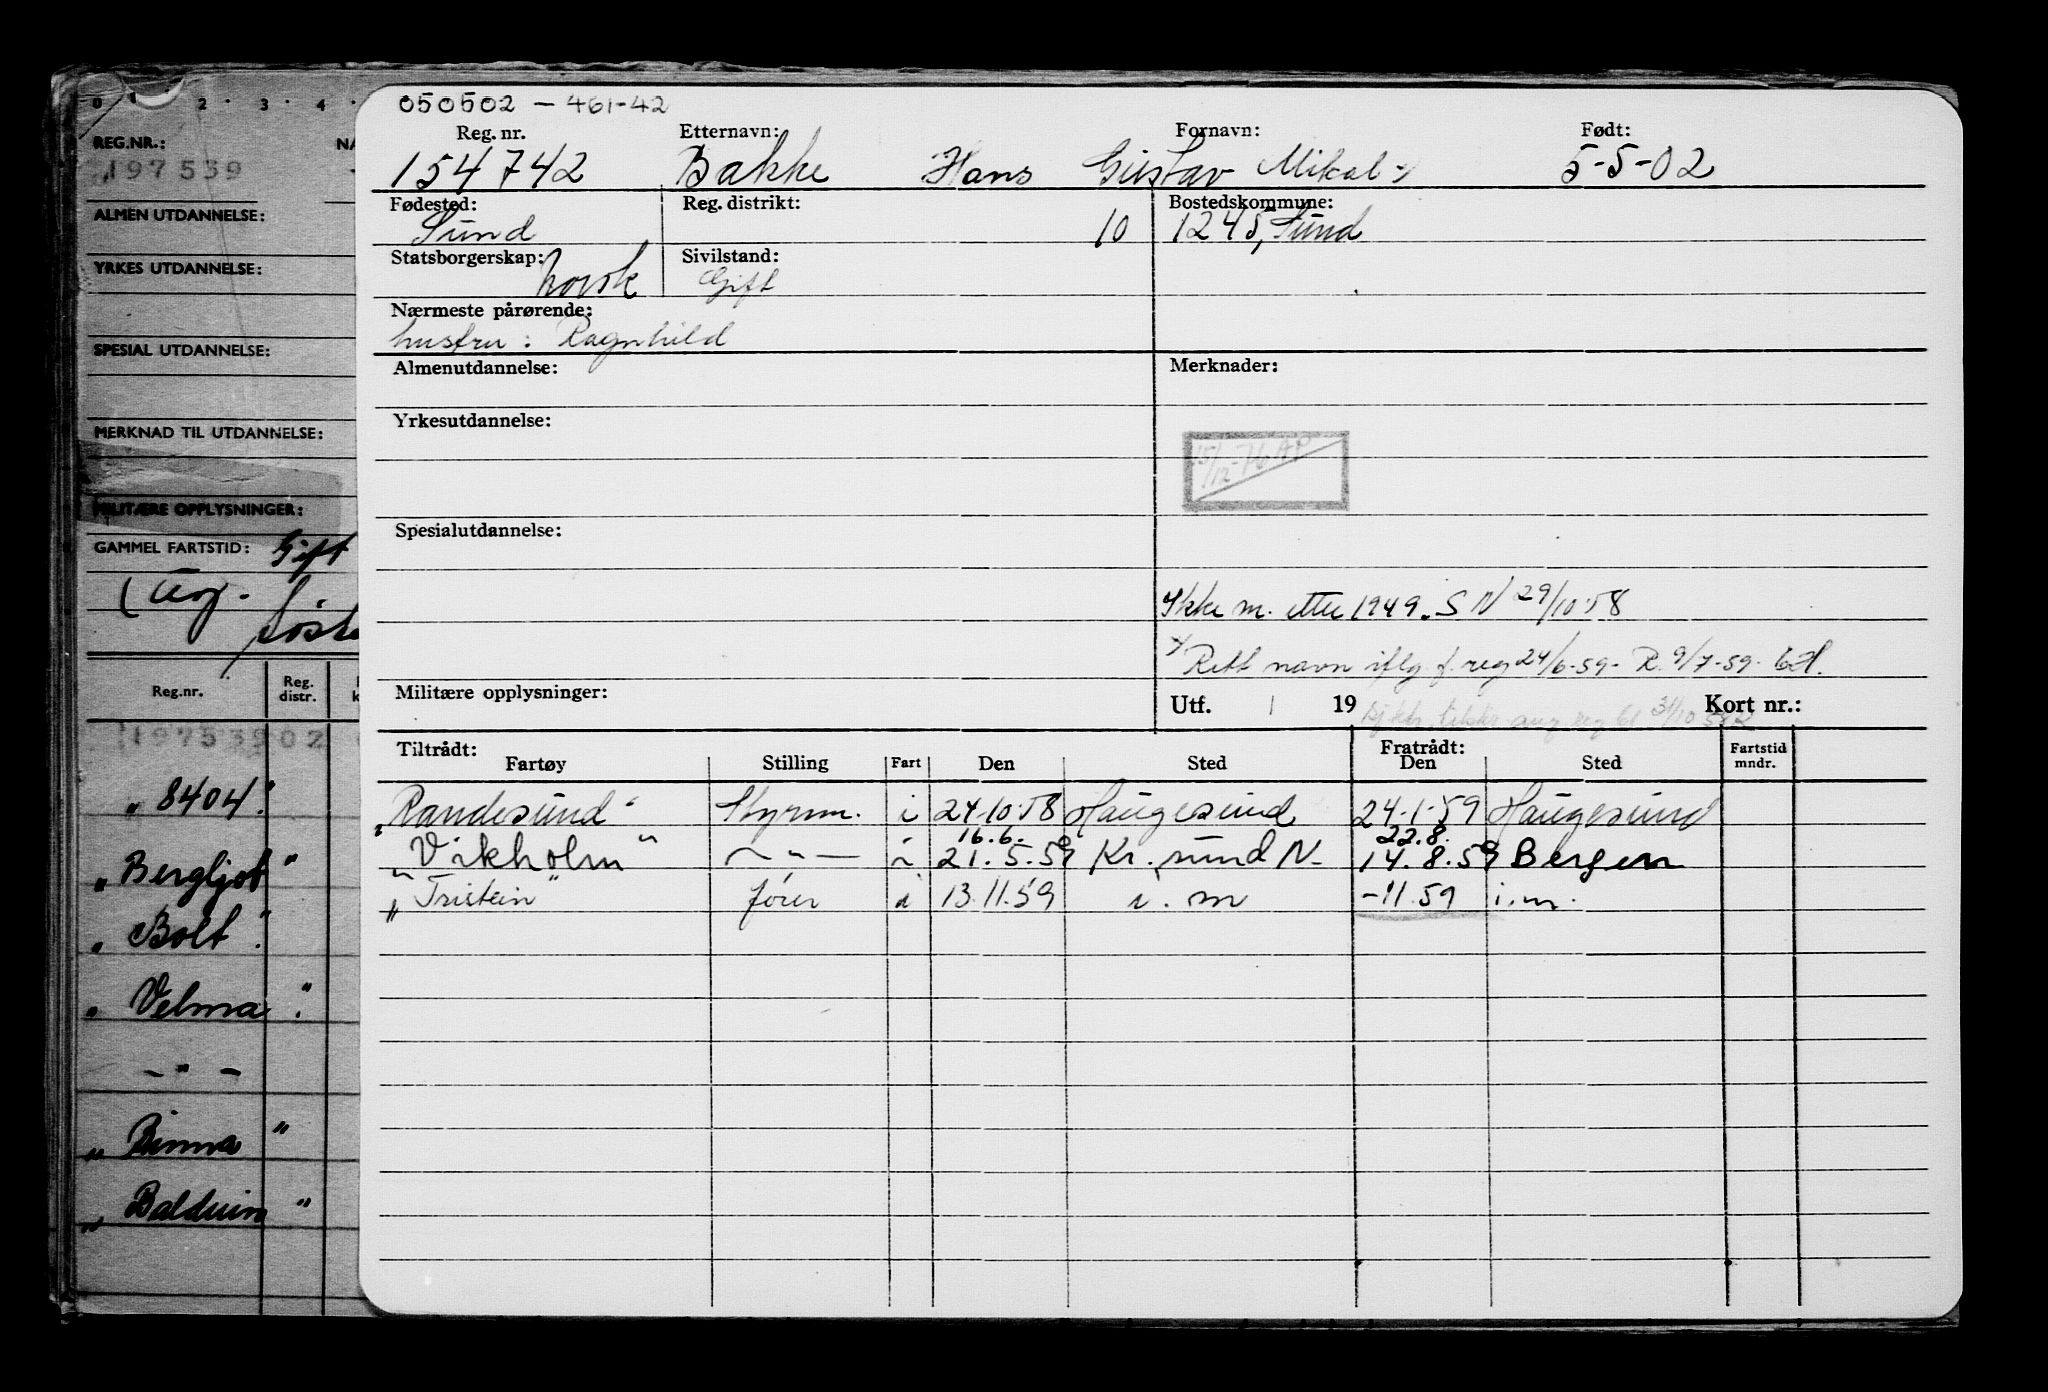 0 1 2 3 4
REG.NR.: NA
197539
ALMEN UTDANNELSE:
YRKES UTDANNELSE:
SPESIAL UTDANNELSE:
MERKNAD TIL UTDANNELSE:
MILITÆRE OPPLYSNINGER:
GAMMEL FARTSTID: Gift
Reg.nr. Reg. distr.
197539 02
„8404"
„Bergljot"
„Bolt"
„Velma"
— " —
„Binna"
„Balduin"
050502 — 461-42
Reg. nr. Etternavn: Fornavn: Født:
154742 Bakke Hans Gustav Mikal x) 5-5-02
Fødested: Reg. distrikt: Bostedskommune:
Sund 10 1245, Sund
Statsborgerskap: norsk Sivilstand:
Gift
Nærmeste pårørende:
hustru: Ragnhild
Almenutdannelse: Merknader:
Yrkesutdannelse:
15/12-76 AP
Spesialutdannelse:
Ikke m. etter 1949. S N 29/10-58
x) Rett navn iflg f. reg 24/6-59- R. 9/7-59-
Militære opplysninger: Utf. 1 19 Kort nr.:
Tiltrådt: Fratrådt: Fartstid
Fartøy Stilling Fart Den Sted Den Sted mndr.
„Randesund" Styrm. i 24.10.58 Haugesund 24.1.59 Haugesund
16.6. 22.8.
„Vikholm" — " — i 21.5.59 Kr.sund N. 14.8.59 Bergen
„Tristein" fører i 13.11.59 i.m -11.59 i.m.